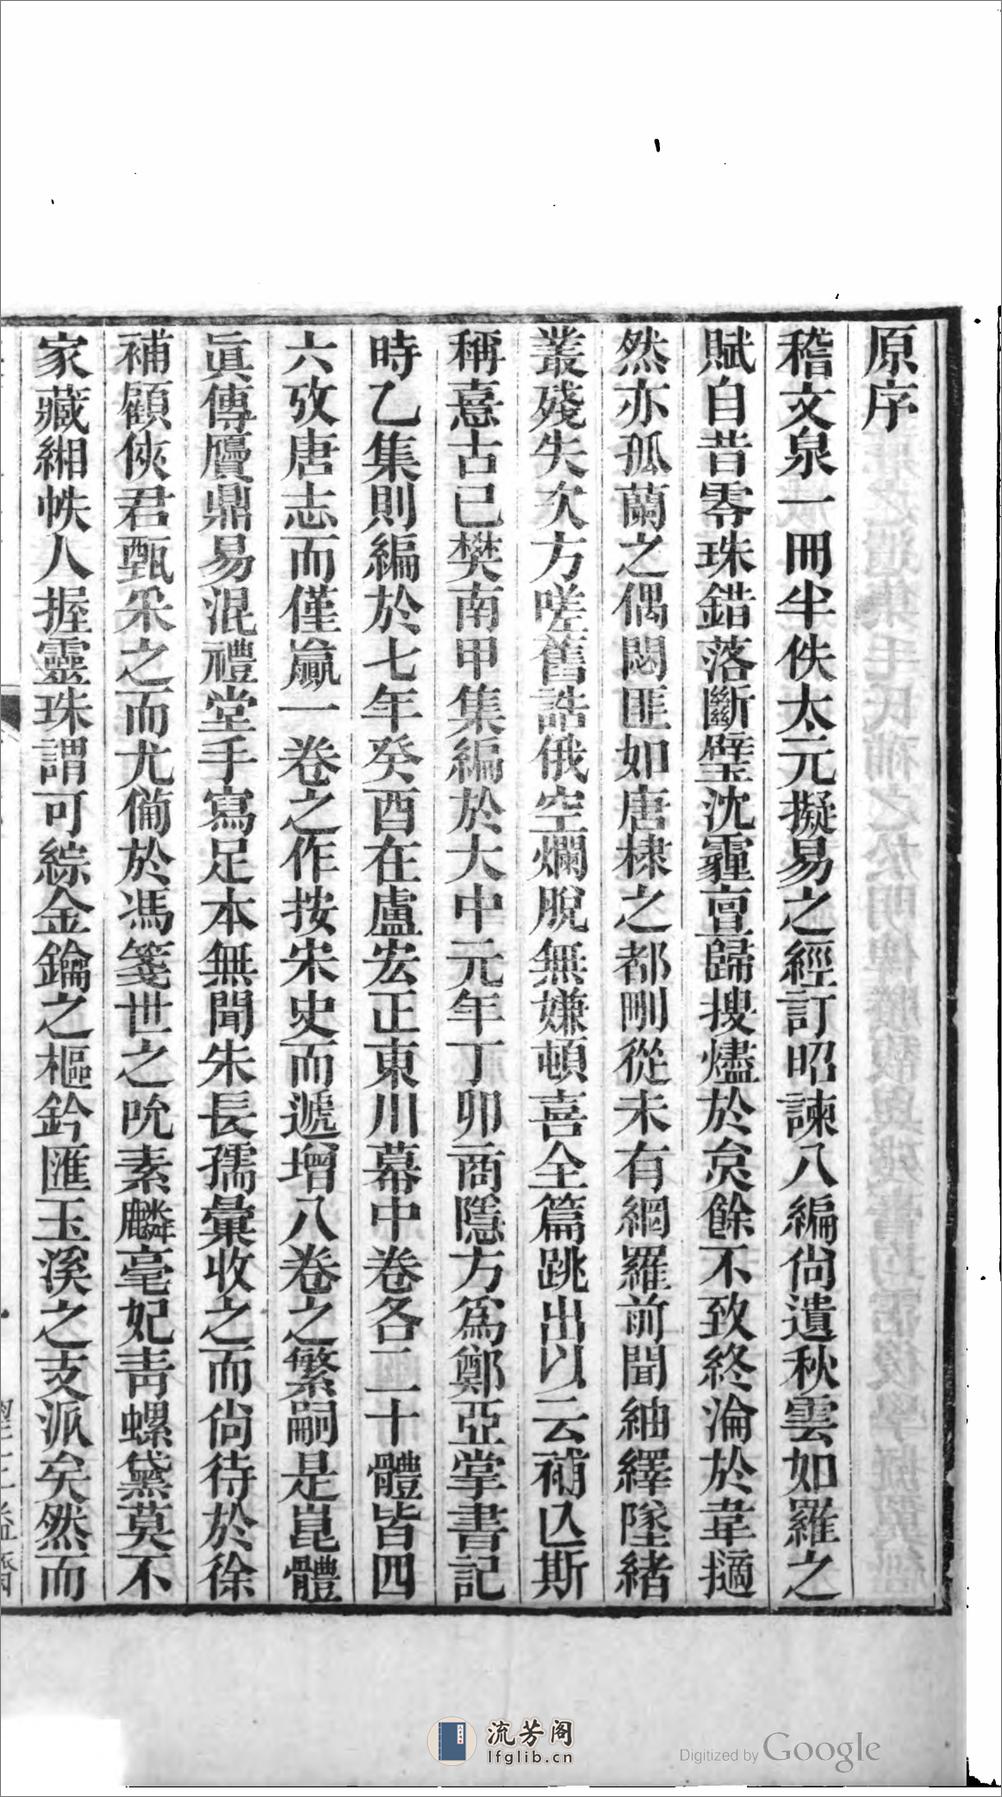 原序
稽文泉一冊半佚太元擬易之經訂昭諫八編尙遺秋雲如羅之
賦自昔零珠錯落斷璧沈霾亶歸搜燼於炱餘不致終淪於韋擿
然亦孤蘭之偶閟匪如唐棣之都刪從未有網羅前聞紬繹墜緒
叢殘失次方嗟舊誥俄空爛脫無嫌頓喜全篇跳出以云補亾斯
稱憙古已樊南甲集編於大中元年丁卯商隱方爲鄭亞掌書記
時乙集則編於七年癸酉在盧宏正東川幕中卷各二十體皆四
六攷唐志而僅贏一卷之作按宋史而遞增八卷之繁嗣是崑體
眞傳贗鼎易混禮堂手寫足本無聞朱長孺彙收之而尙待於徐
補顧俠君甄采之而尤備於馮箋世之吮素麟毫妃靑螺黛莫不
家藏緗帙人握靈珠謂可綜金鑰之樞鈐匯玉溪之支派矣然而
流芳阁
lfglib.cn
Digitized by Google